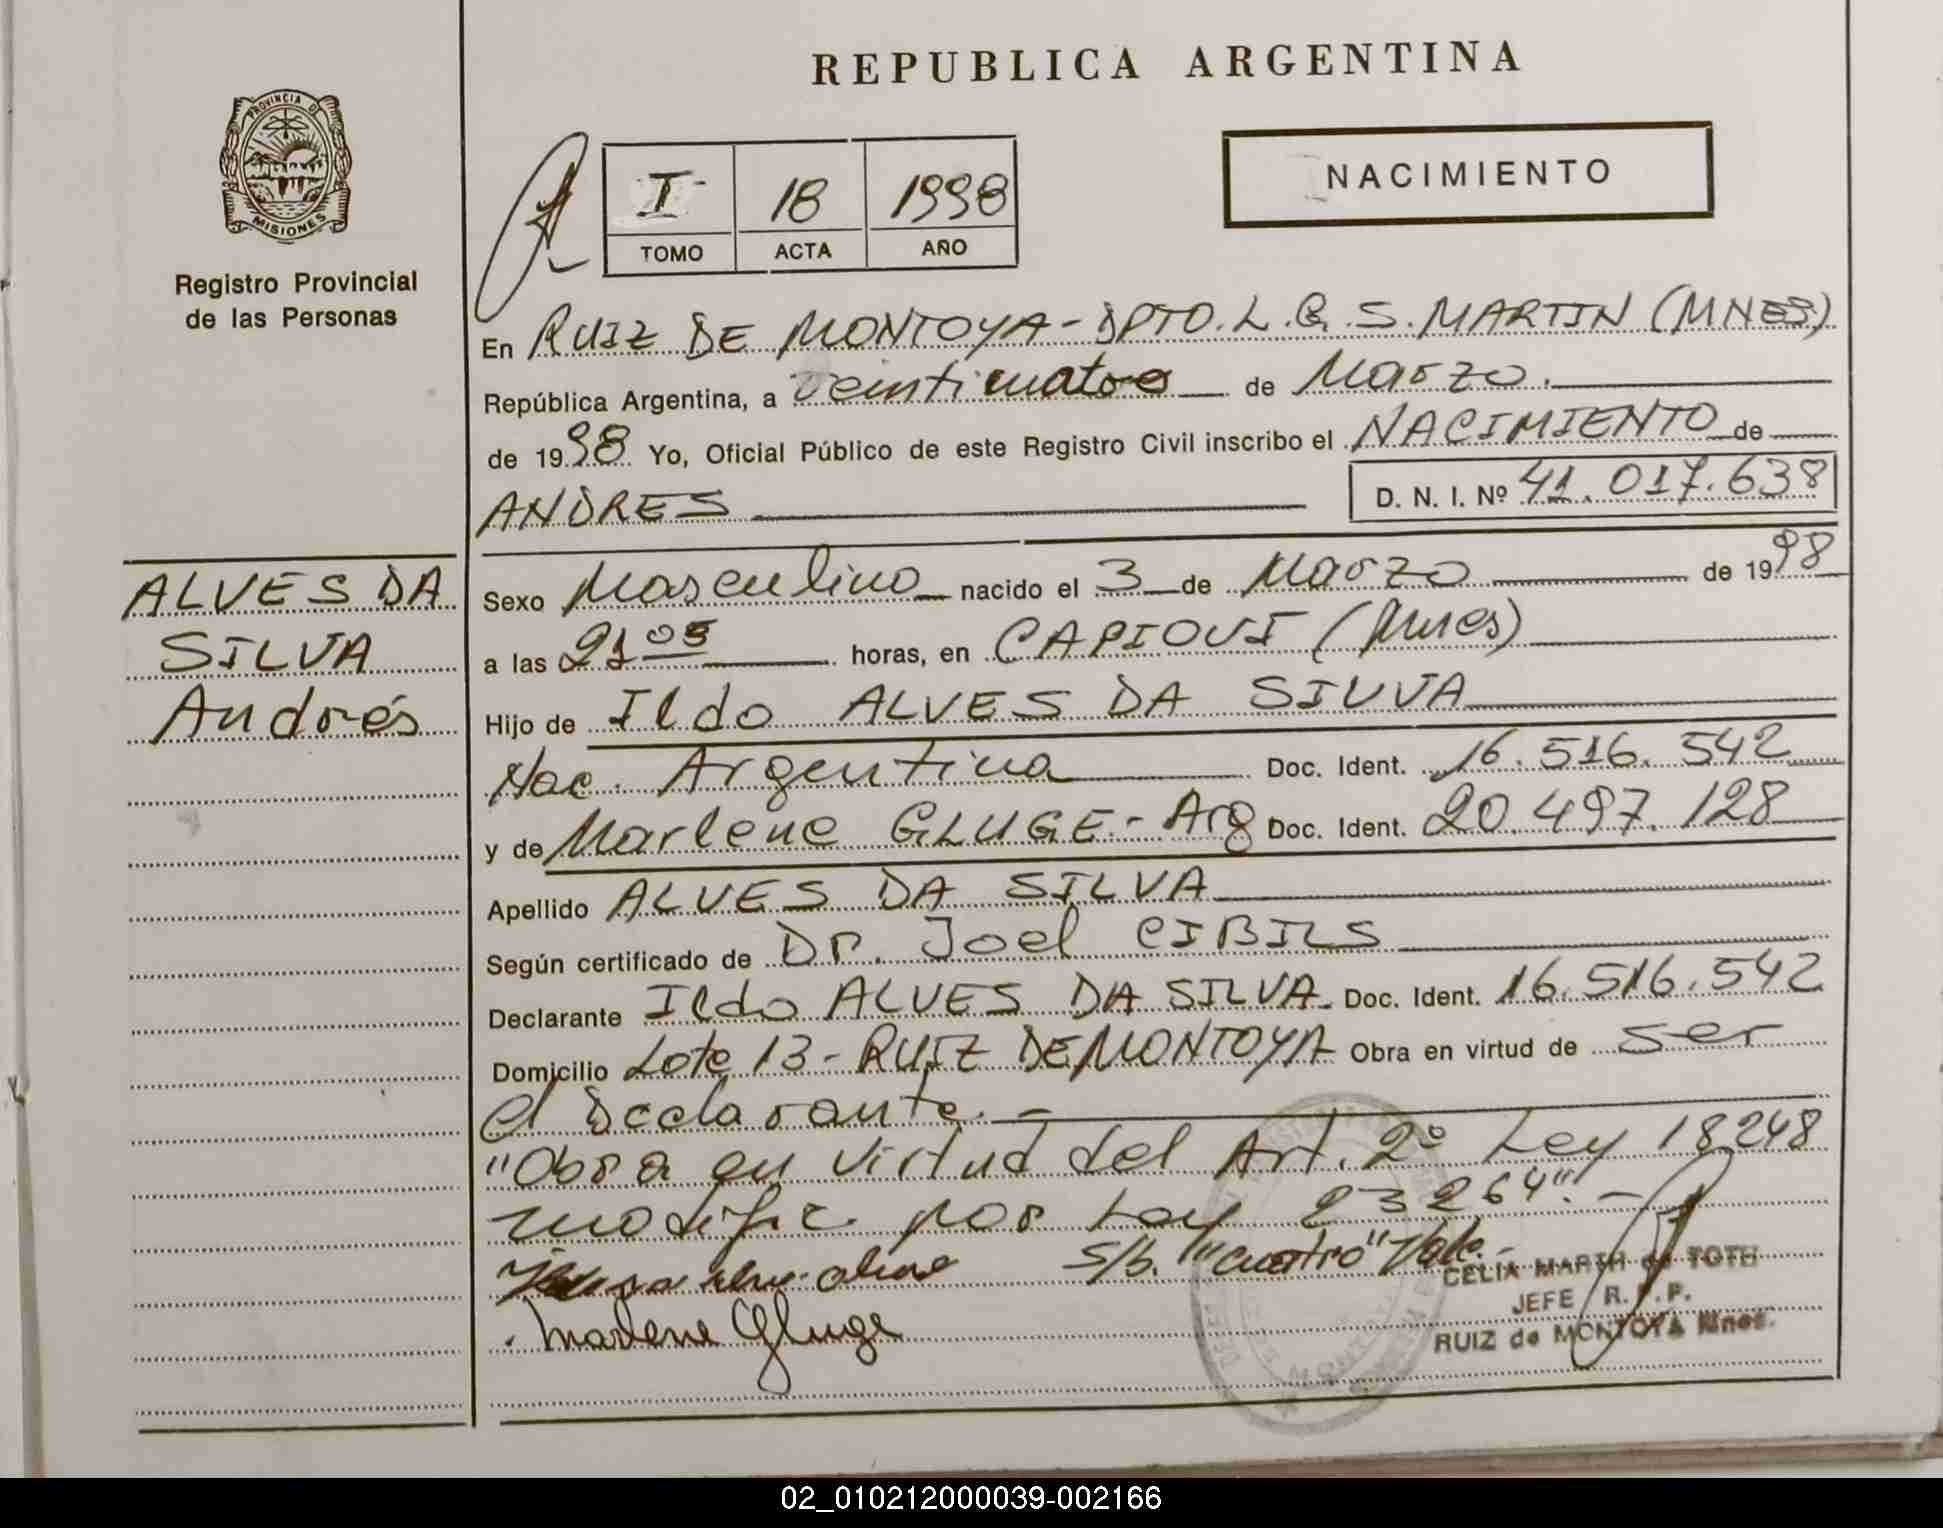 REPUBLICA ARGENTINA
PROVINCIA DE
MISIONES
Registro Provincial
de las Personas
I 18 1998
TOMO ACTA AÑO
NACIMIENTO
En RUIZ DE MONTOYA - DPTO. L. G. S. MARTIN (MNES)
República Argentina, a veinticuatro de Marzo.
de 1998 Yo, Oficial Público de este Registro Civil inscribo el NACIMIENTO de
ANDRES D. N. I. Nº 41.017.638
ALVES DA
SILVA
Andrés
Sexo Masculino nacido el 3 de Marzo de 1998
a las 21 05 horas, en CAPIOVI (Mnes)
Hijo de Ildo ALVES DA SILVA
Nac. Argentina Doc. Ident. 16.516.542
y de Marlene GLUGE - Arg Doc. Ident. 20.497.128
Apellido ALVES DA SILVA
Según certificado de Dr. Joel CIBILS
Declarante Ildo ALVES DA SILVA Doc. Ident. 16.516.542
Domicilio Lote 13 - RUIZ DE MONTOYA Obra en virtud de ser
el Declarante. -
"Obra en virtud del Art. 2º Ley 18248
modific. por Ley 23264". -
S/b. "cuatro" Vale. -
Marlene Gluge
CELIA MARTH de TOTH
JEFE R. P. P.
RUIZ de MONTOYA Mnes.
02_010212000039-002166